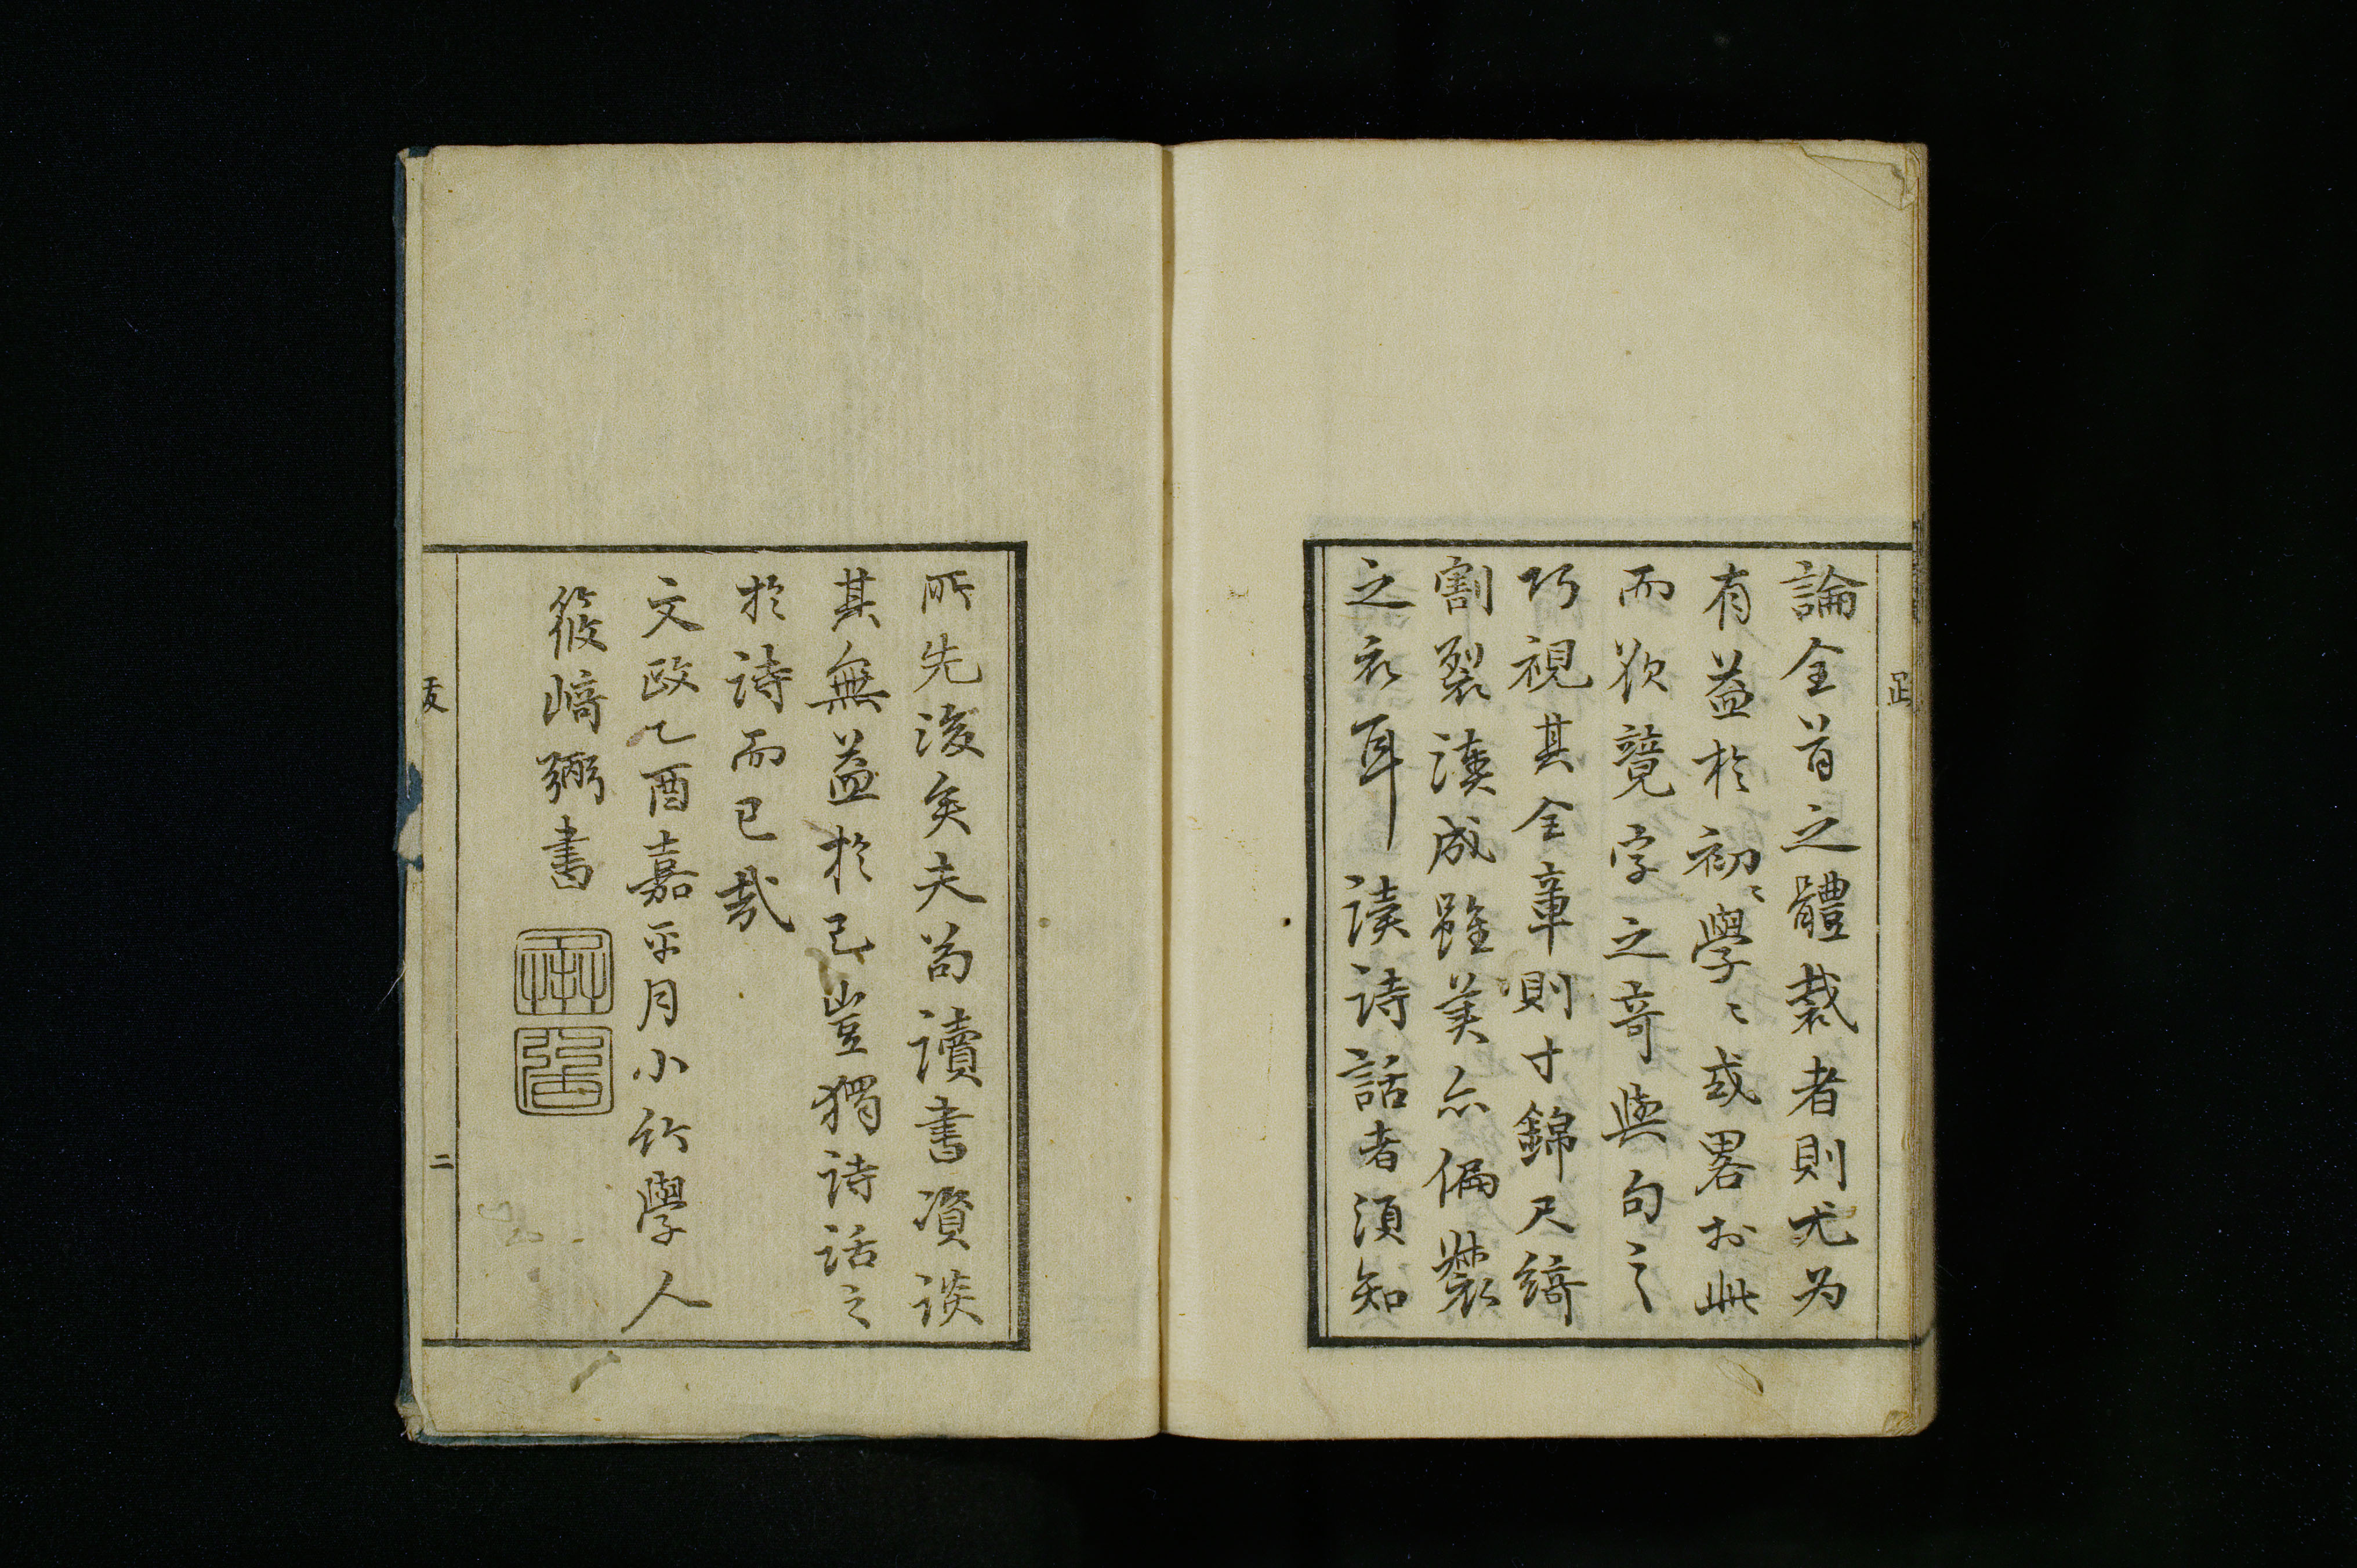 論全首之體裁者則尤为
有益於初〻學〻或畧於此
而欲競字之奇與句之
巧視其全章則寸錦尺綺
割裂湊成雖美亦偏裻
之衣耳讀詩話者須知
所先後矣夫苟讀書資談
其無益於己豈獨詩話之
於詩而已哉
文政乙酉嘉平月小竹學人
筱﨑弼書
二